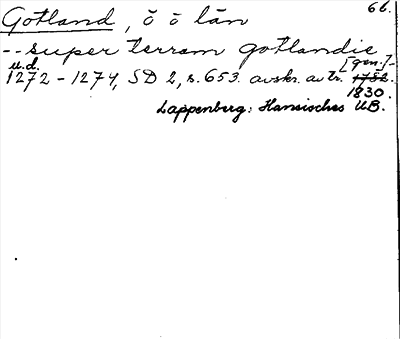 66.
Gotland, ö ö län
-- super terram gotlandie
[gen.]-
u.d.
1272 - 1274, SD 2, s. 653. avskr. av tr. 1782.
1830.
Lappenberg: Hansisches UB.